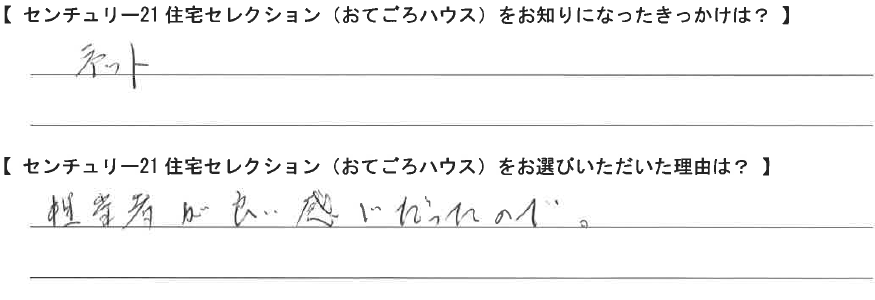 【 センチュリー21 住宅セレクション（おてごろハウス）をお知りになったきっかけは？ 】
ネット
【 センチュリー21 住宅セレクション（おてごろハウス）をお選びいただいた理由は？ 】
担当者が良い感じだったので。